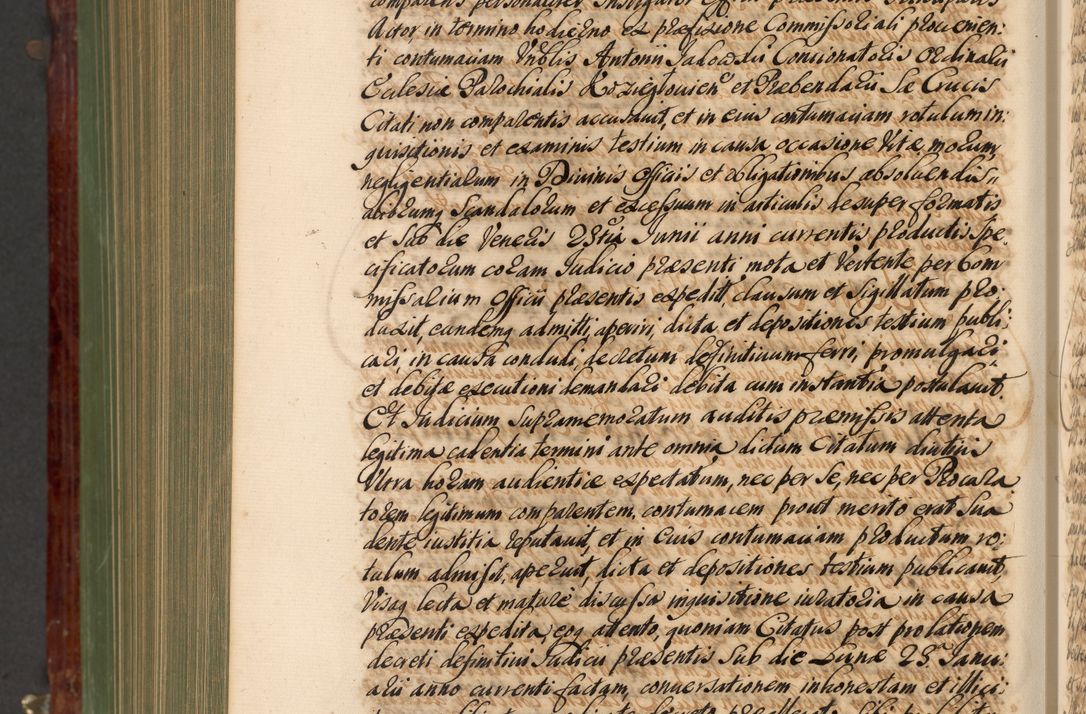 comparens personaliter Instigator Officii praesentis Principalis
Actor in termino hodierno ex praefixione Commissoriali provenien:
ti contumaciam Vnblis Antonii Sadowski Concionatoris Ordinarii
Ecclesiae Parochialis Kozieglovien et Praebendarii Sae Crucis
Citati non comparentis accusavit, et in eius contumaciam rotulum in:
quisitionis et examinis testium in causa occasione Vitae, morum,
negligentiarum in Divinis Officiis et obligationibus absolvendis,
aliorumq Scandalorum et excessuum in articulis desuper formatis
et Sub die Veneris 23tia Junii anni currentis productis Spe
cificatorum coram Judicio praesenti mota et Vertente per Com
missarium Officii praesentis expedit, clausum et Sigillatum pro:
duxit, eundemq admitti, aperiri, dicta, et depositiones testium publi:
cari, in causa concludi, decretum definitivum ferri, promulgari
et debitae executioni demandari debita cum instantia postulavit.
Et Judicium Supramemoratum auditis praemissis attenta
legitima cadentia termini ante omnia dictum Citatum diutius
Ultra horam audientiae expectatum, nec per Se, nec per Procura
torem legitimum comparentem, contumacem prout merito erat Sua
dente iustitia reputavit, et in Eius contumaciam productum ro:
tulum admisit, aperuit, dicta et depositiones testium publicavit,
Visaq lecta et mature discussa inquisitione iuratoria in causa
praesenti expedita, eoq attento, quoniam Citatus post prolationem
decreti definitivi Judicii praesentis Sub die Lunae 23 Janu:
arii anno currenti factam, conversationem inhonestam et illici: